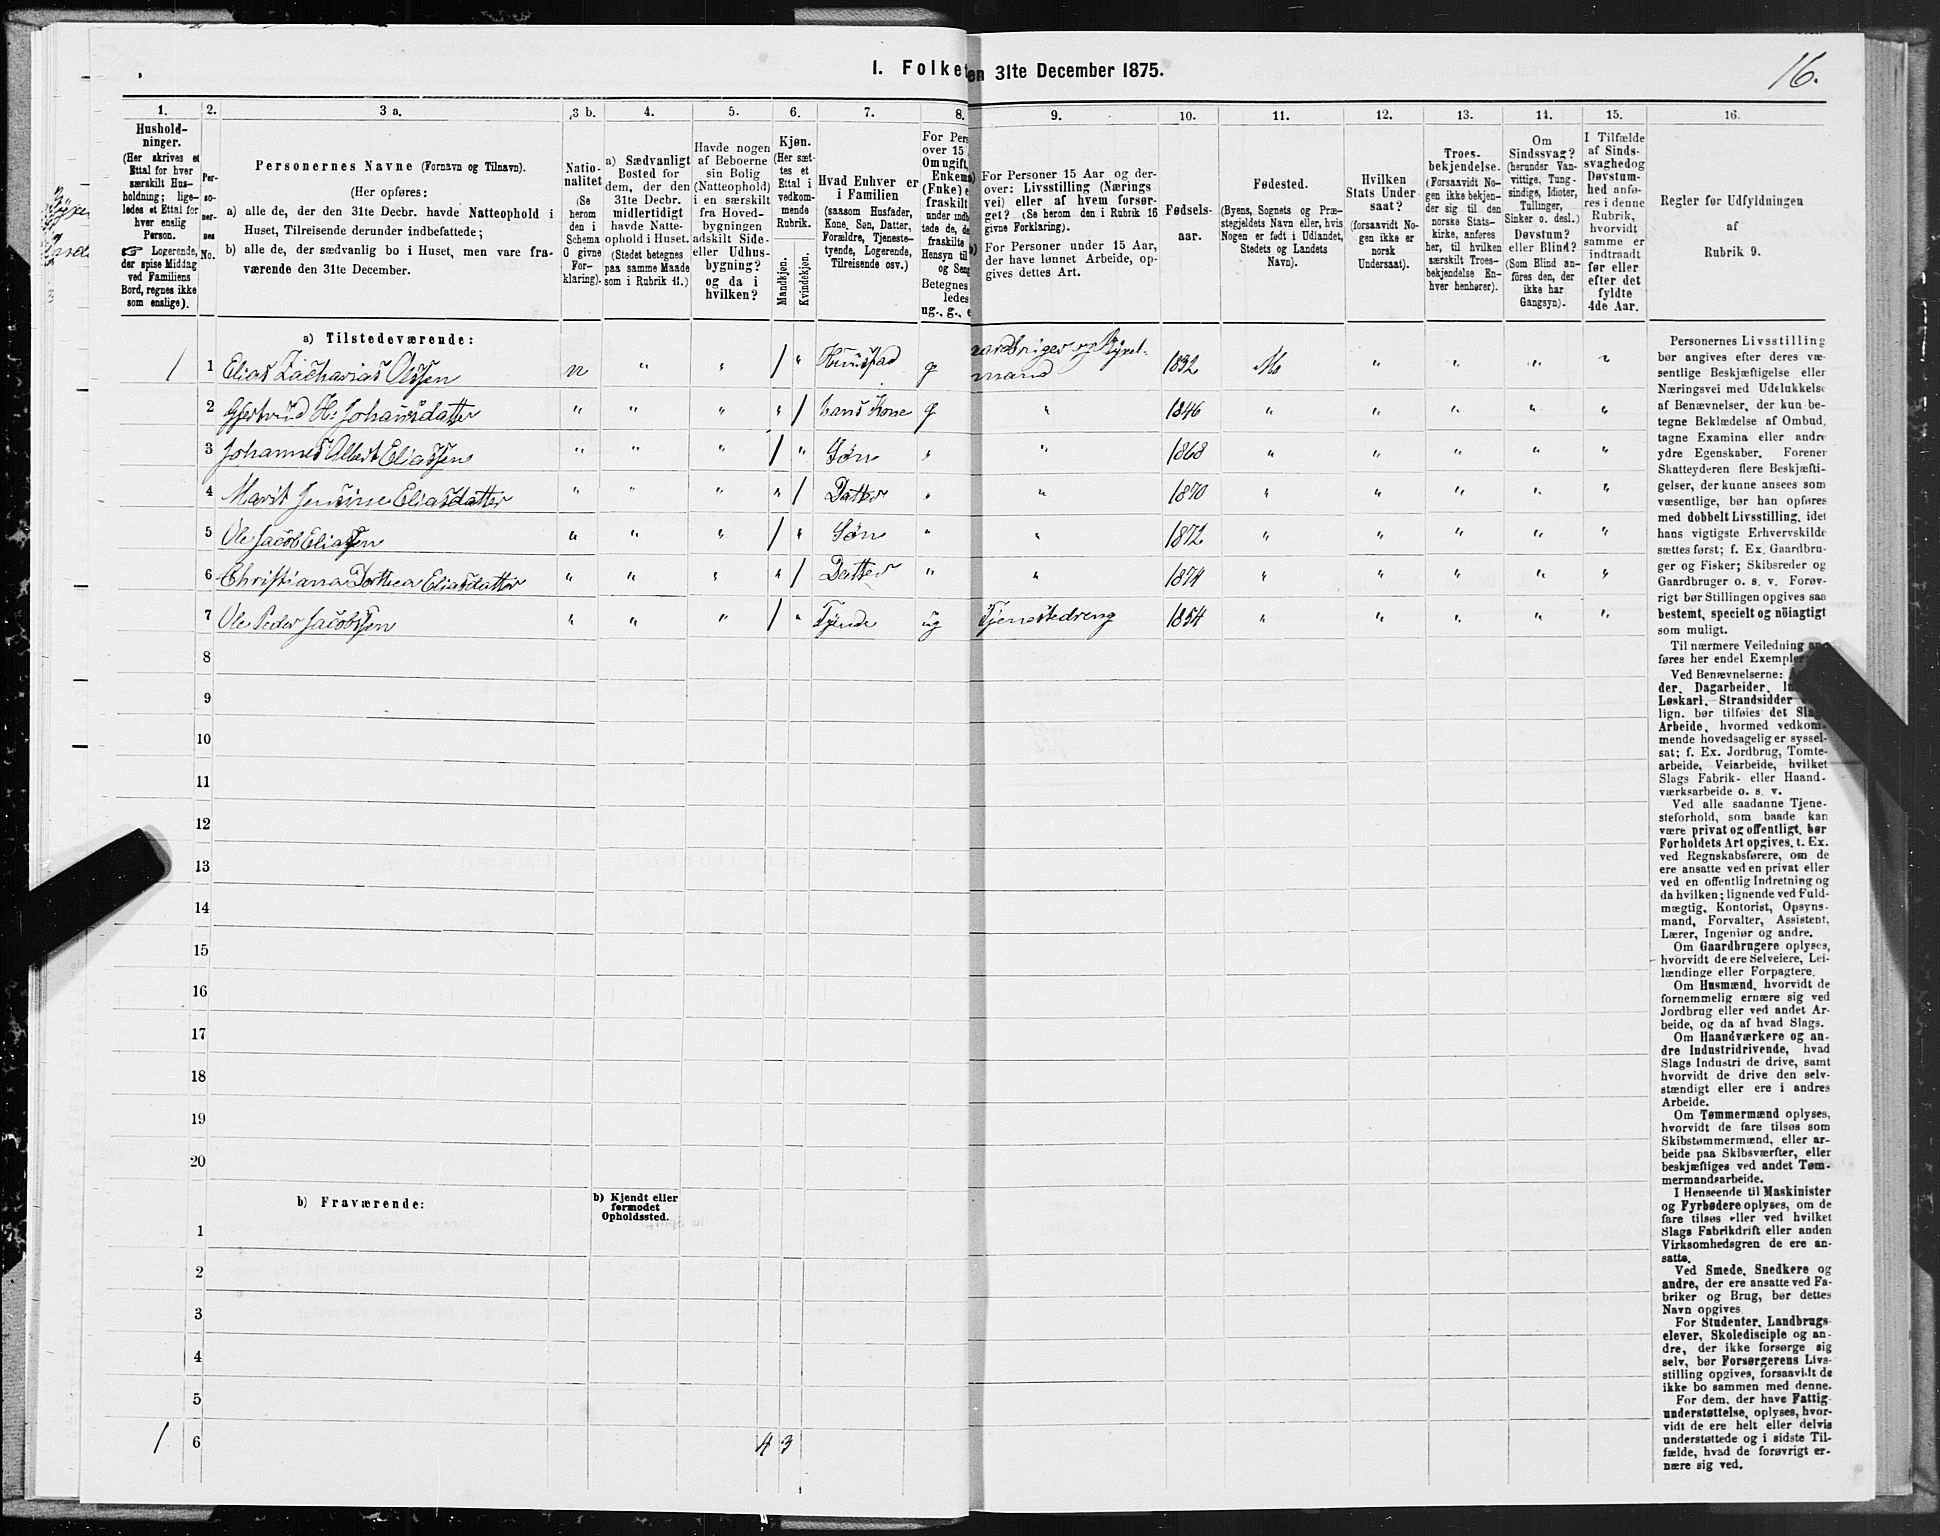 I. Folket
en 31te December 1875.
16.
1.
2.
3 a.
3 b.
4.
5.
6.
7.
8.
9.
10.
11.
12.
13.
14.
15.
16.
Hushold-
ninger.
(Her skrives et
Ettal for hver
særskilt Hus-
holdning; lige-
ledes et Ettal for
hver enslig
Person.
☞ Logerende,
der spise Middag
ved Familiens
Bord, regnes ikke
som enslige).
Per-
so-
ner-
nes
No.
Personernes Navne (Fornavn og Tilnavn).
(Her opføres:
a) alle de, der den 31te Decbr. havde Natteophold i
Huset, Tilreisende derunder indbefattede;
b) alle de, der sædvanlig bo i Huset, men vare fra-
værende den 31te December.
Natio-
nalitet
(Se
herom
den i
Schema
O givne
For-
klaring).
a) Sædvanligt
Bosted for
dem, der den
31te Decbr.
midlertidigt
havde Natte-
ophold i Huset.
(Stedet betegnes
paa samme Maade
som i Rubrik 11.)
Havde nogen
af Beboerne
sin Bolig
(Natteophold)
i en særskilt
fra Hoved-
bygningen
adskilt Side-
eller Udhus-
bygning?
og da i
hvilken?
Kjøn.
(Her sæt-
tes et
Ettal i
vedkom-
mende
Rubrik.
Mandkjøn.
Kvindekjøn.
Hvad Enhver er
i Familien
(saasom Husfader,
Kone, Søn, Datter,
Forældre, Tjeneste-
tyende, Logerende,
Tilreisende osv.)
For Pers
over 15
Om ugift,
Enkema
(Fnke) e
fraskilt
under indb
tede de, d
fraskilte
Hensyn til
og Sen
Betegnes
ledes
ug., g., e
For Personer 15 Aar og der-
over: Livsstilling (Nærings
vei) eller af hvem forsør-
get? (Se herom den i Rubrik 16
givne Forklaring).
For Personer under 15 Aar,
der have lønnet Arbeide, op-
gives dettes Art.
Fødsels-
aar.
Fødested.
(Byens, Sognets og Præ-
stegjeldets Navn eller, hvis
Nogen er født i Udlandet,
Stedets og Landets
Navn).
Hvilken
Stats Under-
saat?
(forsaavidt No-
gen ikke er
norsk
Undersaat).
Troes-
bekjendelse.
(Forsaavidt No-
gen ikke bekjen-
der sig til den
norske Stats-
kirke, anføres
her, til hvilken
særskilt Troes-
bekjendelse En-
hver henhører).
Om
Sindssvag?
(herunder Van-
vittige, Tung-
sindige, Idioter,
Tullinger,
Sinker o. desl.)
Døvstum?
eller Blind?
(Som Blind an-
føres den, der
ikke har
Gangsyn).
I Tilfælde
af Sinds-
svaghedog
Døvstum-
hed anfø-
res i denne
Rubrik,
hvorvidt
samme er
indtraadt
før eller
efter det
fyldte
4de Aar.
Regler for Udfyldningen
af
Rubrik 9.
a) Tilstedeværende:
1 1 Elias Zacharias Olssen n " " 1 " Huusfad g aardbruger og Byxel-
mand 1832 " " " "
2 Gjertrud H: Johannsdatter " " " " 1 hans Kone g " 1846 " " " " "
3 Johannes Albert Eliassen " " " 1 " Søn " " 1868 " " " " "
4 Marit Jensine Eliasdatter " " " " 1 Datter " " 1870 " " " " "
5 Ole Jacob Eliassen " " " 1 " Søn " " 1872 " " " " "
6 Christiana Dorthea Eliasdatter " " " " 1 Datter " " 1874 " " " " "
7 Ole Peder Jacobssen " " " 1 " Tjende ug Tjenestedreng 1854 " " " " "
8
9
10
11
12
13
14
15
16
17
18
19
20
b) Fraværende:
b) Kjendt eller
formodet
Opholdssted.
1
2
3
4
5
1 6 4 3
Personernes Livsstilling
bør angives efter deres væ-
sentlige Beskjæftigelse eller
Næringsvei med Udelukkelse
af Benævnelser, der kun be-
tegne Beklædelse af Ombud,
tagne Examina eller andre
ydre Egenskaber. Forener
Skatteyderen flere Beskjæfti-
gelser, der kunne ansees som
væsentlige, bør han opføres
med dobbelt Livsstilling, idet
hans vigtigste Erhvervskilde
sættes først; f. Ex. Gaardbru-
ger og Fisker; Skibsreder og
Gaardbruger o. s. v. Forøv-
rigt bør Stillingen opgives saa
bestemt, specielt og nöiagtigt
som muligt.
Til nærmere Veiledning an-
føres her endel Exempler:
Ved Benævnelserne:
der, Dagarbeider,
Løskarl, Strandsidder
lign. bør tilføies det Slags
Arbeide, hvormed vedkom-
mende hovedsagelig er syssel-
sat; f. Ex. Jordbrug, Tomte-
arbeide, Veiarbeide, hvilket
Slags Fabrik- eller Haand-
værksarbeide o. s. v.
Ved alle saadanne Tjene-
steforhold, som baade kan
være privat og offentligt, bør
Forholdets Art opgives, t. Ex.
ved Regnskabsførere, om de
ere ansatte ved en privat eller
ved en offentlig Indretning og
da hvilken; lignende ved Fuld-
mægtig, Kontorist, Opsyns-
mand, Forvalter, Assistent,
Lærer, Ingeniør og andre.
Om Gaardbrugere oplyses,
hvorvidt de ere Selveiere, Lei-
lændinge eller Forpagtere.
Om Husmænd, hvorvidt de
fornemmelig ernære sig ved
Jordbrug eller ved andet Ar-
beide, og da af hvad Slags.
Om Haandværkere og an-
dre Industridrivende, hvad
Slags Industri de drive, samt
hvorvidt de drive den selv-
stændigt eller ere i andres
Arbeide.
Om Tømmermænd oplyses,
hvorvidt de fare tilsøs som
Skibstømmermænd, eller ar-
beide paa Skibsværfter, eller
beskjæftiges ved andet Tøm-
mermandsarbeide.
I Henseende til Maskinister
og Fyrbødere oplyses, om de
fare tilsøs eller ved hvilket
Slags Fabrikdrift eller anden
Virksomhedsgren de ere an-
satte.
Ved Smede, Snedkere og
andre, der ere ansatte ved Fa-
briker og Brug, bør dettes
Navn opgives
For Studenter, Landbrugs-
elever, Skoledisciple og an-
dre, der ikke forsørge sig
selv, bør Forsørgerens Livs-
stilling opgives, forsaavidt de
ikke bo sammen med denne.
For dem, der have Fattig-
understøttelse, oplyses, hvor-
vidt de ere helt eller delvis
understøttede og i sidste Til-
fælde, hvad de forøvrigt er-
nære sig ved.